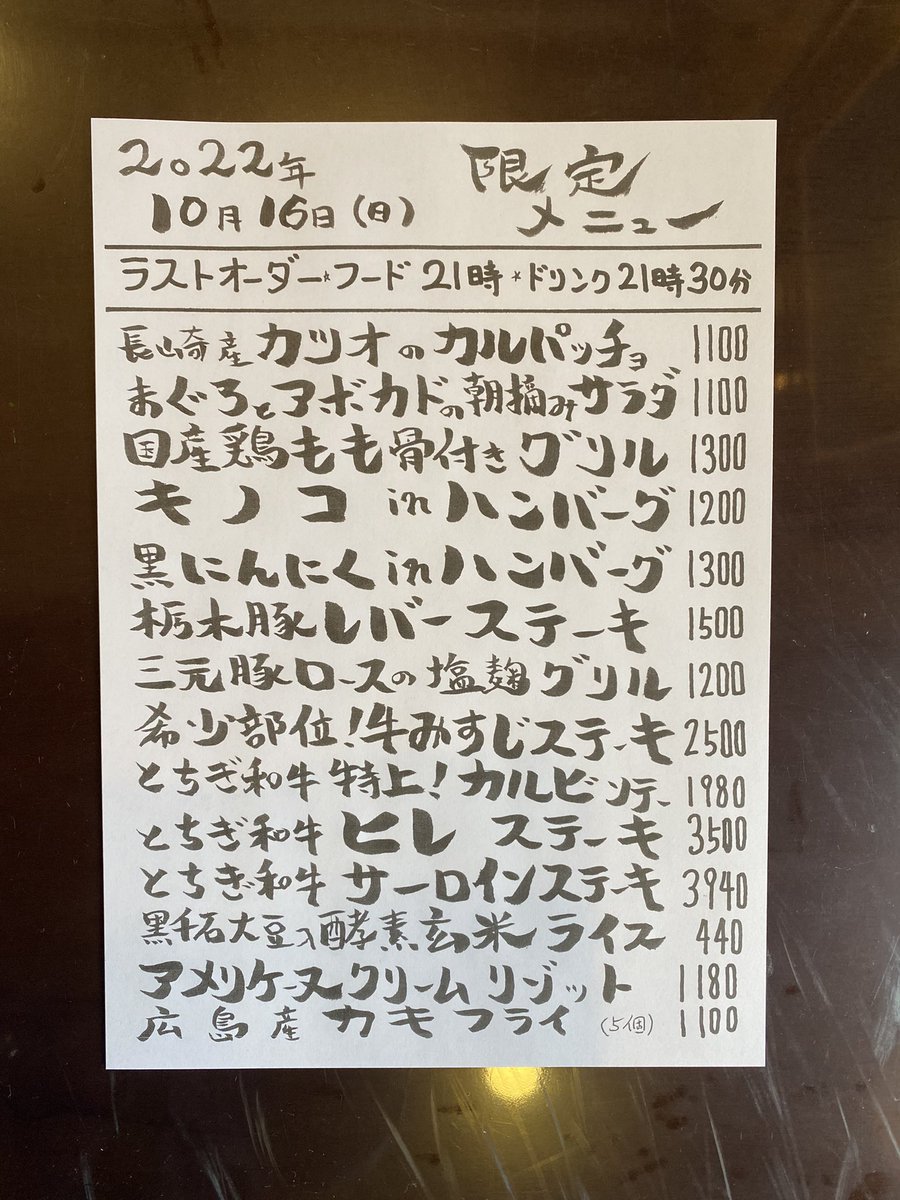 2022年
10月16日(日)
限定
メニュー
ラストオーダー*フード 21時 * ドリンク21時30分
長崎産 カツオのカルパッチョ 1100
まぐろとアボカドの朝摘みサラダ 1100
国産鶏もも骨付きグリル 1300
キノコ in ハンバーグ 1200
黒にんにく in ハンバーグ 1300
栃木豚レバーステーキ 1500
三元豚ロースの塩麹グリル 1200
希少部位!牛みすじステーキ 2500
とちぎ和牛 特上!カルビソテー 1980
とちぎ和牛 ヒレ ステーキ 3500
とちぎ和牛 サーロインステーキ 3940
黒千石大豆入酵素玄米 ライス 440
アメリケーヌクリームリゾット 1180
広島産 カキフライ (5個) 1100